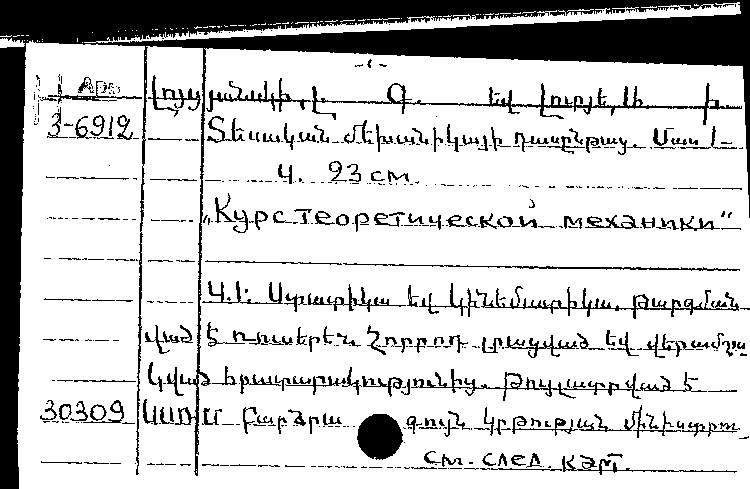 -1-
Арм Լոյցյանսկի, Լ. Գ. եվ Լուրյե, Ա. Ի.
3-6912 Տեսական մեխանիկայի դասընթաց. Մաս 1-
Ч. 23 см.
„Курс теоретической механики“
Ч.1: Ստատիկա եվ կինեմատիկա. թարգման
ված է ռուսերեն չորրորդ լրացված եվ վերամշա
կված հրատարակությունից. Թույլատրված է
30309 ՍՍՌՄ բարձրա գույն կրթության մինիստրու_
см. след. карт.